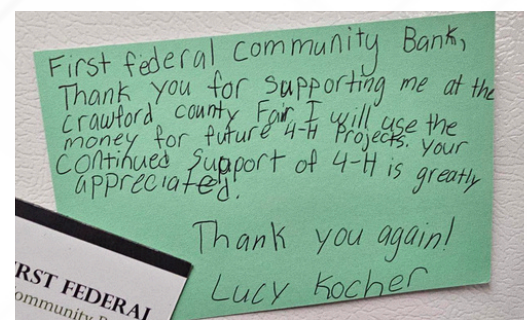 First federal Community Bank,
Thank you for supporting me at the
Crawford county Fair I will use the
money for future 4-H Projects. Your
Continued Support of 4-H is greatly
appreciated!
Thank you again!
Lucy Kocher
RST FEDERAL
ommunity B